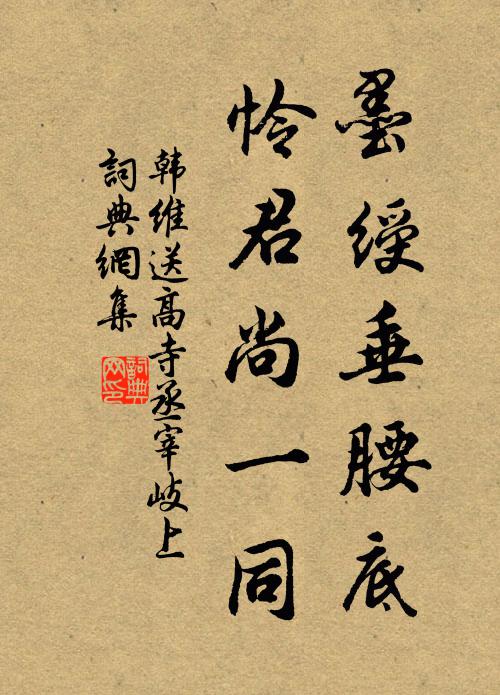 墨綬垂腰底
怜君尚一同
韩維送高寺丞宰岐上
詞典網集
詞典
网印